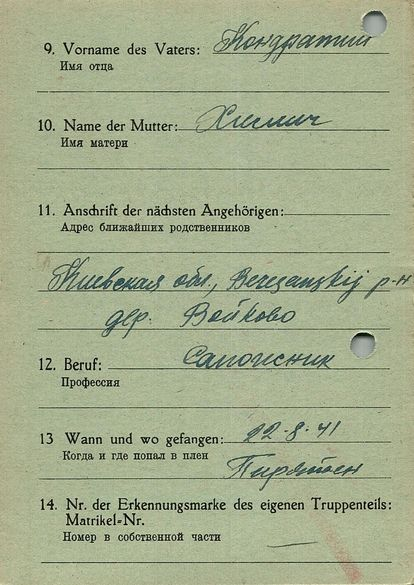 9. Vorname des Vaters: Кондратий
Имя отца
10. Name der Mutter: Хиемич
Имя матери
11. Anschrift der nächsten Angehörigen:
Адрес ближайших родственников
Киевская обл., Berezanskij р-н
дер. Войково
12. Beruf: Сапожник
Профессия
13 Wann und wo gefangen: 22-8-41
Когда и где попал в плен
Пирятин
14. Nr. der Erkennungsmarke des eigenen Truppenteils:
Matrikel-Nr.
Номер в собственной части —